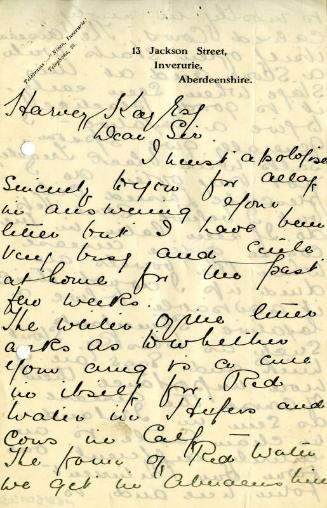 Telegrams :— Simon, Inverurie.
Telephone 51.
13 Jackson Street,
Inverurie,
Aberdeenshire.
Harvey Kay Esq
Dear Sir.
I must apologise
Sincerely to you for delay
in answering your
letter but I have been
very busy and
at home for the past
few weeks.
The writer of the letter
asks as to whether
your drug is a cure
in itself for Red
Water in Heifers and
Cows in Calf.
The form of Red Water
we get in Aberdeenshire